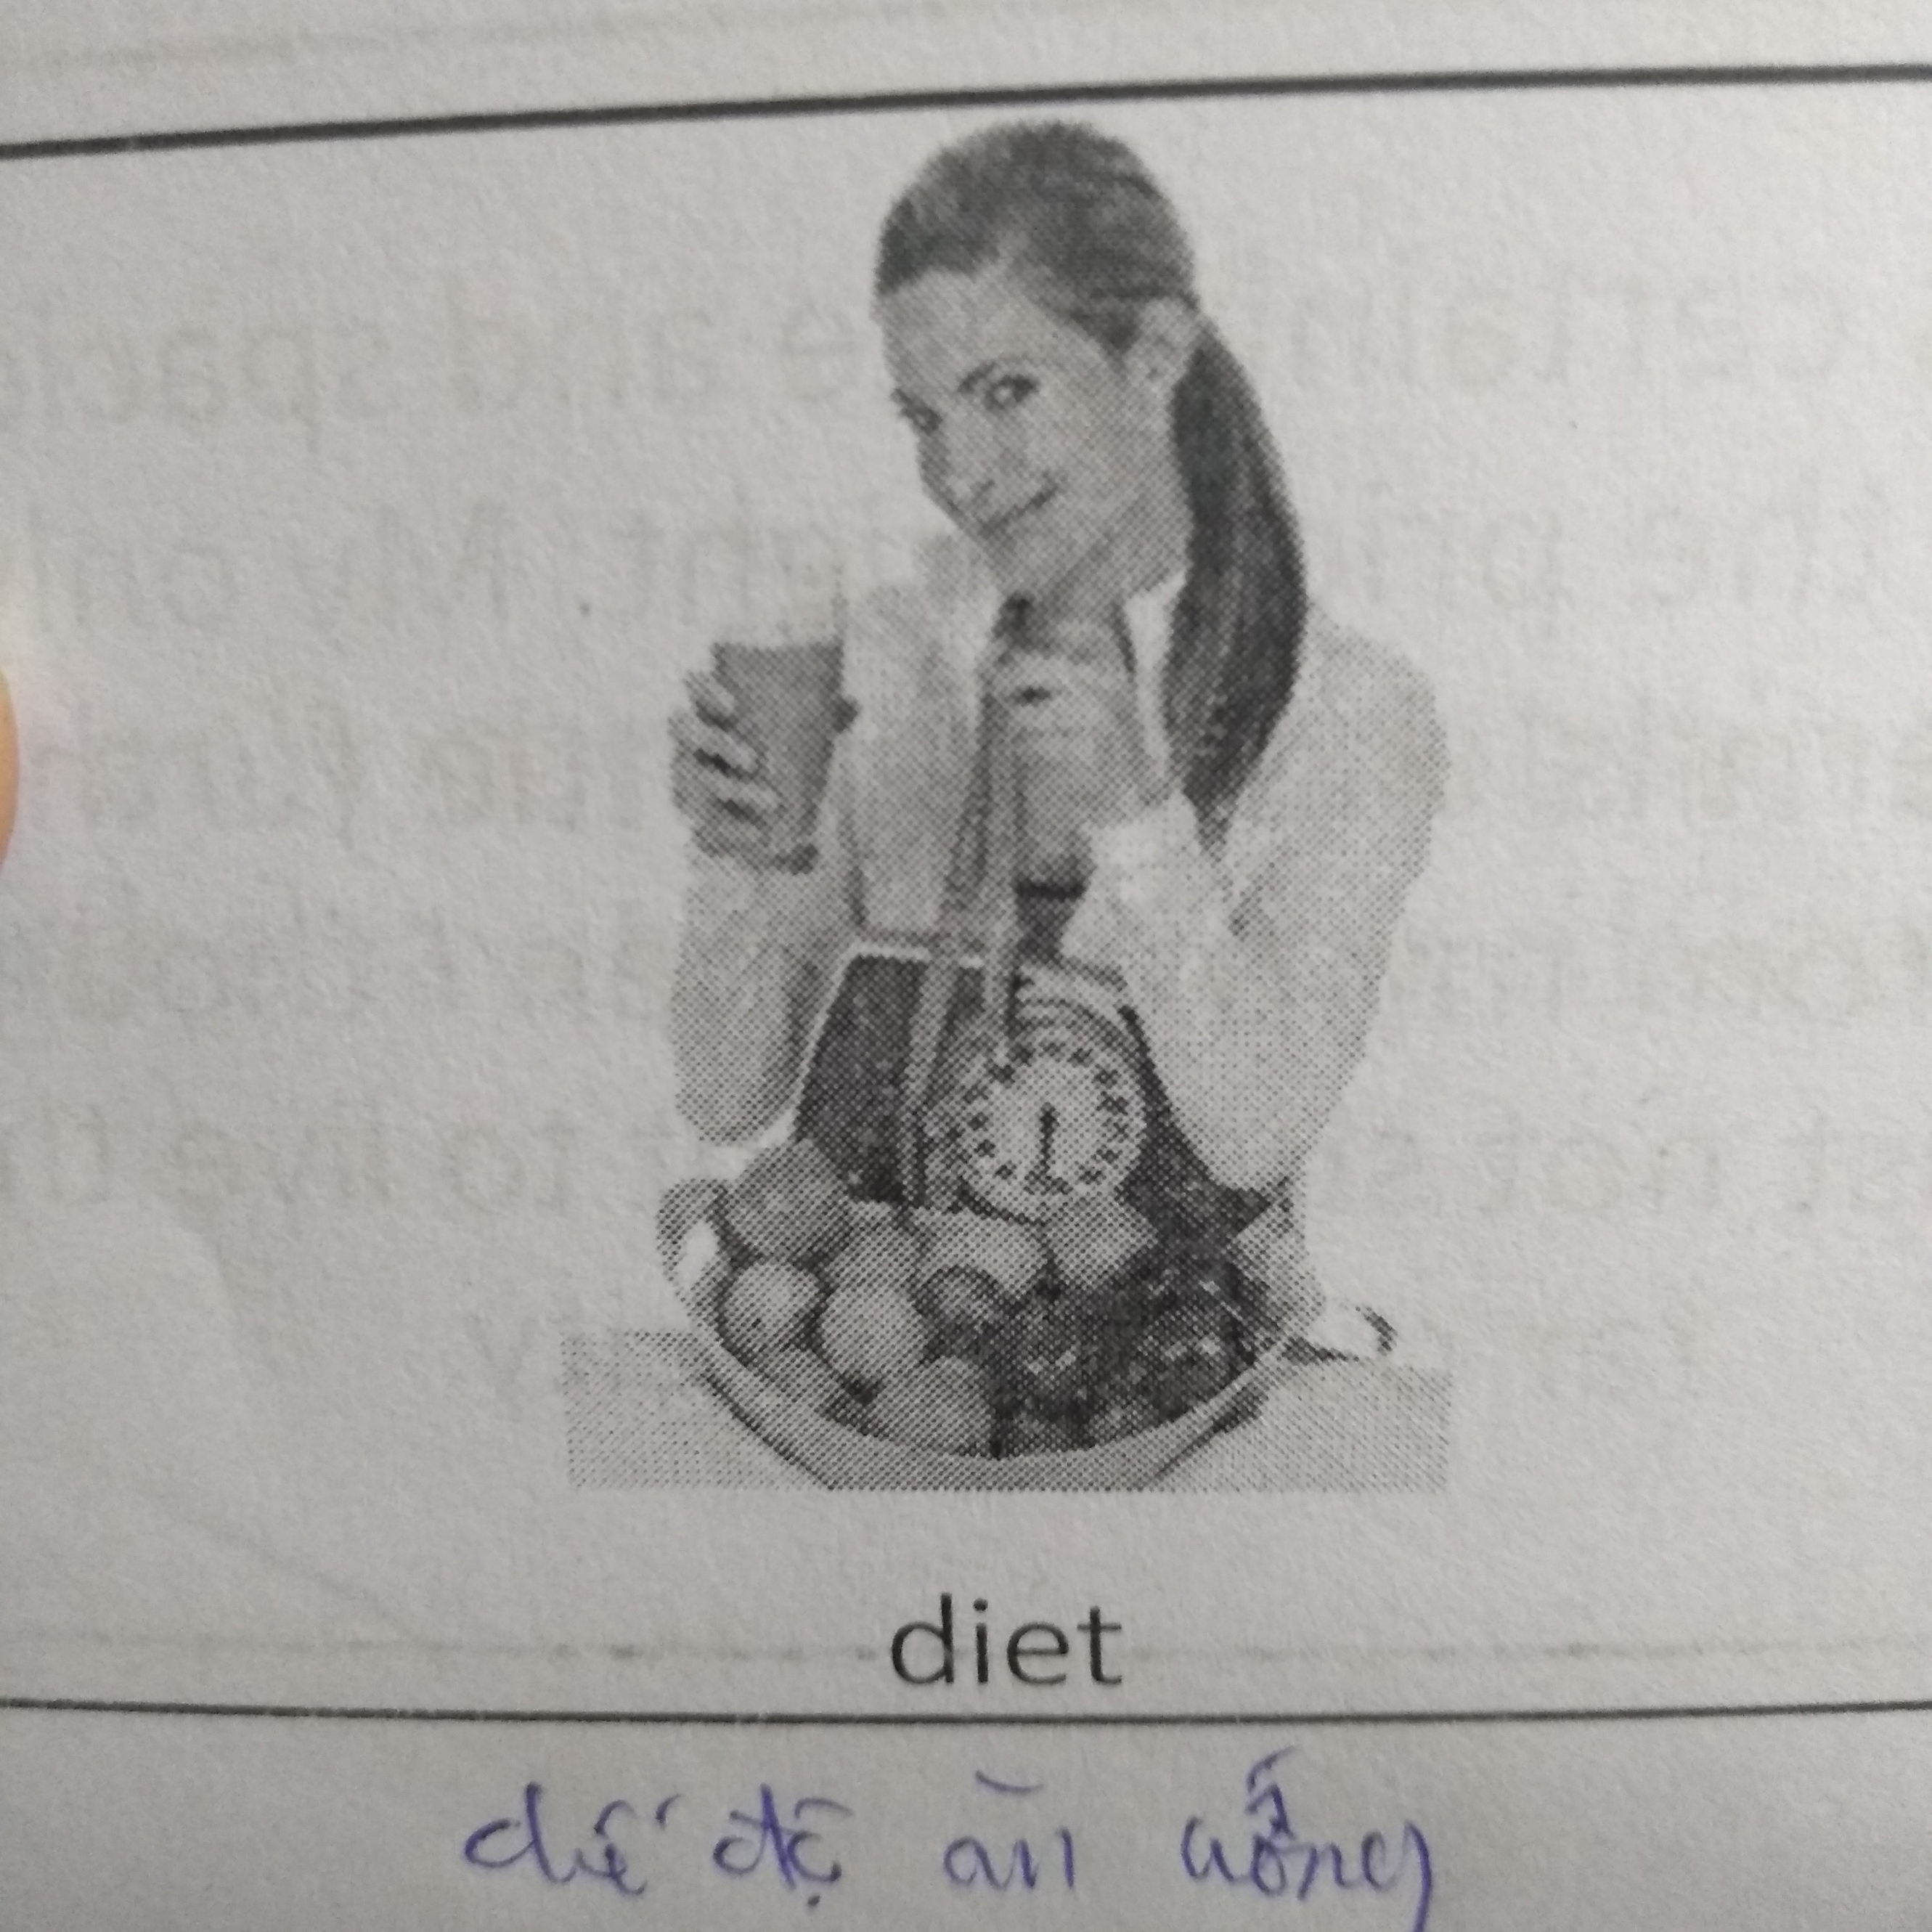 diet
chế độ ăn uống